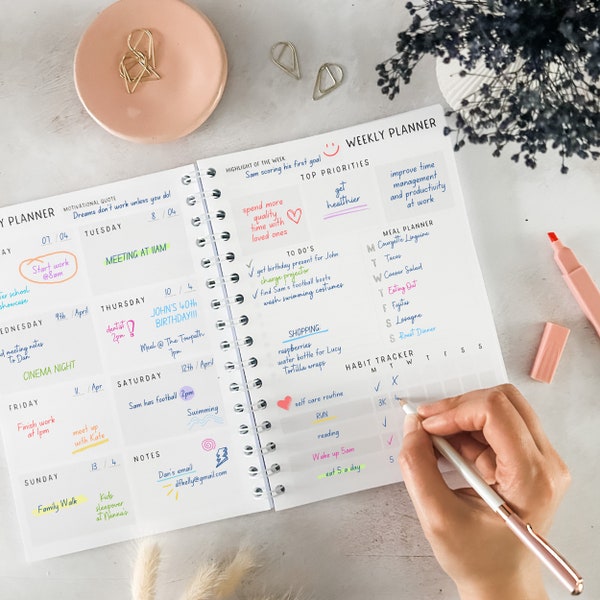 PLANNER
MOTIVATIONAL QUOTE
Dreams don't work unless you do!
07 / 04
Start work
@8am
school
showcase
TUESDAY
8 / 04
MEETING AT 11AM
9th / April
meeting notes
To Dan
CINEMA NIGHT
THURSDAY
10 / 4
dentist
2pm
!
JOHN'S 40th
BIRTHDAY!!!
Meal @ The Tawpath
FRIDAY
11 / Apr
Finish work
at 1pm
meet up
with Kate
SATURDAY
12th / Apr
Sam has football 2pm
Swimming
SUNDAY
13 / 4
Family Walk
Kids
sleepover
at Nannas
NOTES
Dan's email
dfkelly@gmail.com
WEEKLY PLANNER
HIGHLIGHT OF THE WEEK
Sam scoring his first goal
TOP PRIORITIES
spend more
quality
time with
loved ones
get
healthier
improve time
management
and productivity
at work
TO DO'S
get birthday present for John
change projector
find Sam's football boots
wash swimming costumes
SHOPPING
raspberries
water bottle for Lucy
Tortilla wraps
MEAL PLANNER
M Courgette Linguine
T Tacos
W Caesar Salad
T Eating Out
F Fajitas
S Lasagne
S Roast Dinner
HABIT TRACKER
M T W T F S S
self care routine
RUN 3K
reading
Wake up 5am
eat 5 a day 5